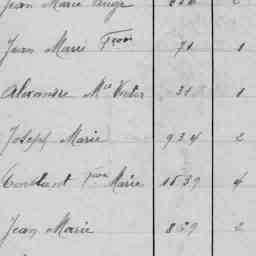 Jean Marie Ange
Jean Marie Fcois 71 1
Alexandre Mie Victor 31 1
Joseph Marie 934 2
Constant Fcois Marie 1539 4
Jean Marie 859 2